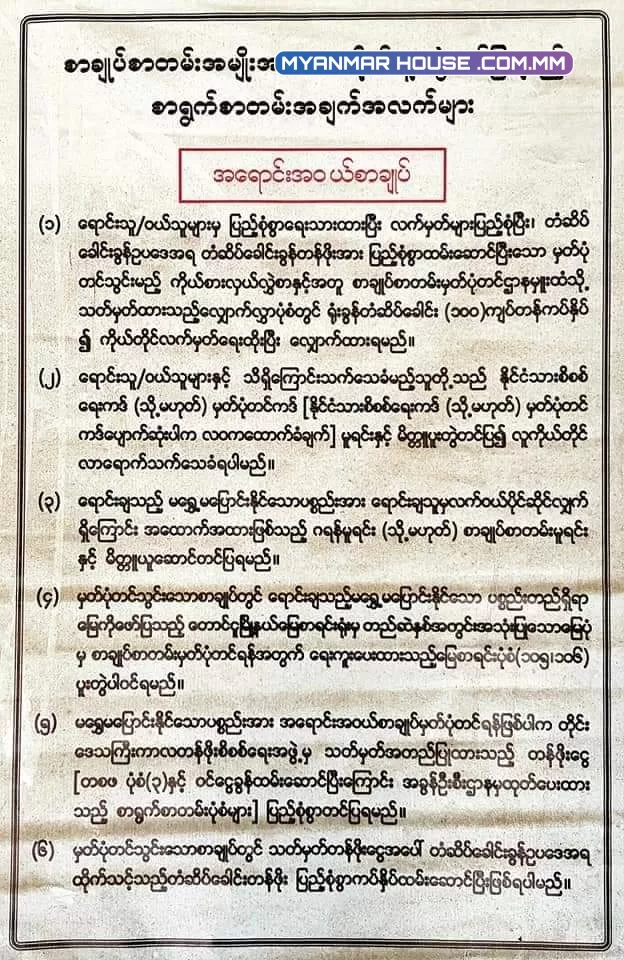 စာချုပ်စာတမ်းအမျိုးအ
MYANMAR HOUSE .COM.MM
စာရွက်စာတမ်းအချက်အလက်များ
အရောင်းအဝယ်စာချုပ်
(၁) ရောင်းသူ/ဝယ်သူများမှ ပြည့်စုံစွာရေးသားထားပြီး လက်မှတ်များပြည့်စုံပြီး၊ တံဆိပ်
ခေါင်းခွန်ဥပဒေအရ တံဆိပ်ခေါင်းခွန်တန်ဖိုးအား ပြည့်စုံစွာထမ်းဆောင်ပြီးသော မှတ်ပုံ
တင်သွင်းမည့် ကိုယ်စားလှယ်လွှဲစာနှင့်အတူ စာချုပ်စာတမ်းမှတ်ပုံတင်ဌာနမှူးထံသို့
သတ်မှတ်ထားသည့်လျှောက်လွှာပုံစံတွင် ရုံးခွန်တံဆိပ်ခေါင်း (၁၀၀)ကျပ်တန်ကပ်နှိပ်
၍ ကိုယ်တိုင်လက်မှတ်ရေးထိုးပြီး လျှောက်ထားရမည်။
(၂) ရောင်းသူ/ဝယ်သူများနှင့် သိရှိကြောင်းသက်သေခံမည့်သူတို့သည် နိုင်ငံသားစိစစ်
ရေးကဒ် (သို့မဟုတ်) မှတ်ပုံတင်ကဒ် [နိုင်ငံသားစိစစ်ရေးကဒ် (သို့မဟုတ်) မှတ်ပုံတင်
ကဒ်ပျောက်ဆုံးပါက လဝကထောက်ခံချက်] မူရင်းနှင့် မိတ္တူပူးတွဲတင်ပြ၍ လူကိုယ်တိုင်
လာရောက်သက်သေခံရပါမည်။
(၃) ရောင်းချသည့် မရွှေ့မပြောင်းနိုင်သောပစ္စည်းအား ရောင်းချသူမှလက်ဝယ်ပိုင်ဆိုင်လျှက်
ရှိကြောင်း အထောက်အထားဖြစ်သည့် ဂရန်မူရင်း (သို့မဟုတ်) စာချုပ်စာတမ်းမူရင်း
နှင့် မိတ္တူယူဆောင်တင်ပြရမည်။
(၄) မှတ်ပုံတင်သွင်းသောစာချုပ်တွင် ရောင်းချသည့်မရွှေ့မပြောင်းနိုင်သော ပစ္စည်းတည်ရှိရာ
မြေကိုဖော်ပြသည့် တောင်ငူမြို့နယ်မြေစာရင်းရုံးမှ တည်ဆဲနှစ်အတွင်းအသုံးပြုသောမြေပုံ
မှ စာချုပ်စာတမ်းမှတ်ပုံတင်ရန်အတွက် ရေးကူးပေးထားသည့်မြေစာရင်းပုံစံ(၁၀၅၊၁၀၆)
ပူးတွဲပါဝင်ရမည်။
(၅) မရွှေ့မပြောင်းနိုင်သောပစ္စည်းအား အရောင်းအဝယ်စာချုပ်မှတ်ပုံတင်ရန်ဖြစ်ပါက တိုင်း
ဒေသကြီးကာလတန်ဖိုးစိစစ်ရေးအဖွဲ့မှ သတ်မှတ်အတည်ပြုထားသည့် တန်ဖိုးငွေ
[တစဖ ပုံစံ(၃)နှင့် ဝင်ငွေခွန်ထမ်းဆောင်ပြီးကြောင်း အခွန်ဦးစီးဌာနမှထုတ်ပေးထား
သည့် စာရွက်စာတမ်းပုံစံများ] ပြည့်စုံစွာတင်ပြရမည်။
(၆) မှတ်ပုံတင်သွင်းသောစာချုပ်တွင် သတ်မှတ်တန်ဖိုးငွေအပေါ် တံဆိပ်ခေါင်းခွန်ဥပဒေအရ
ထိုက်သင့်သည့်တံဆိပ်ခေါင်းတန်ဖိုး ပြည့်စုံစွာကပ်နှိပ်ထမ်းဆောင်ပြီးဖြစ်ရပါမည်။